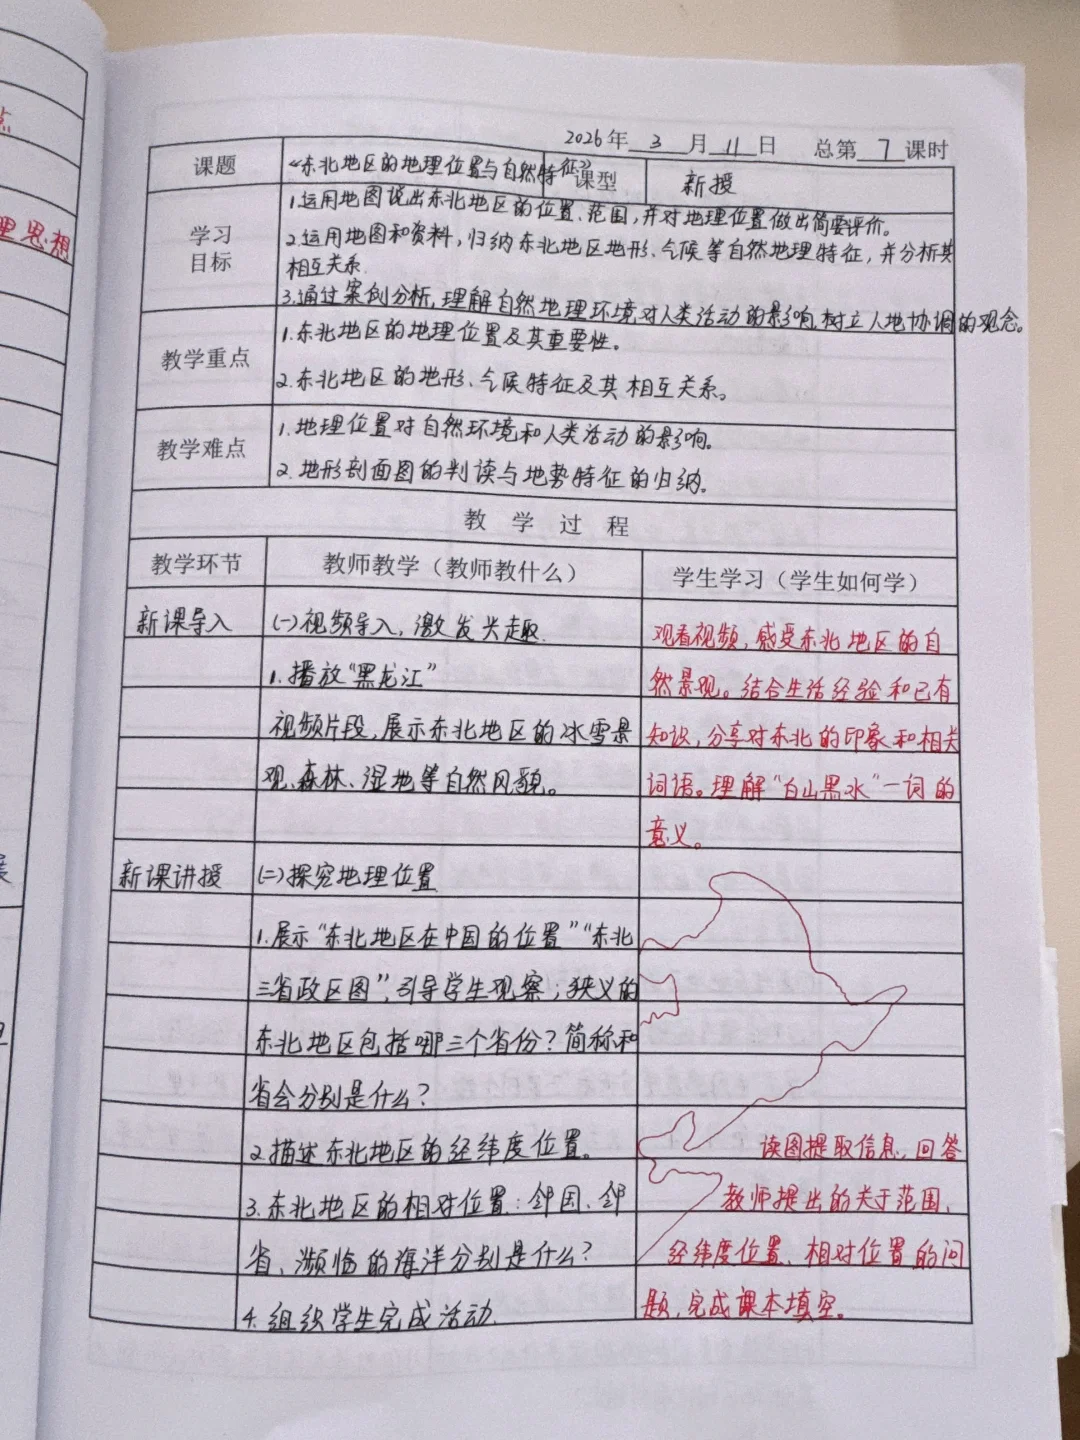 点
理思想
展
2026年 3 月 11 日 总第 7 课时
课题 《东北地区的地理位置与自然特征》 课型 新授
学习目标
1.运用地图说出东北地区的位置、范围,并对地理位置做出简要评价。
2.运用地图和资料,归纳东北地区地形、气候等自然地理特征,并分析其
相互关系.
3.通过案例分析,理解自然地理环境对人类活动的影响,树立人地协调的观念。
教学重点
1.东北地区的地理位置及其重要性。
2.东北地区的地形、气候特征及其相互关系。
教学难点
1.地理位置对自然环境和人类活动的影响。
2.地形剖面图的判读与地势特征的归纳。
教学过程
教学环节 教师教学(教师教什么) 学生学习(学生如何学)
新课导入
(一)视频导入,激发兴趣.
1.播放“黑龙江”
视频片段,展示东北地区的冰雪景
观、森林、湿地等自然风貌。
观看视频,感受东北地区的自
然景观。结合生活经验和已有
知识,分享对东北的印象和相关
词语。理解“白山黑水”一词的
意义。
新课讲授
(二)探究地理位置
1.展示“东北地区在中国的位置”“东北
三省政区图”,引导学生观察;狭义的
东北地区包括哪三个省份?简称和
省会分别是什么?
2.描述东北地区的经纬度位置。
3.东北地区的相对位置:邻国、邻
省、濒临的海洋分别是什么?
4.组织学生完成活动.
读图提取信息,回答
教师提出的关于范围、
经纬度位置、相对位置的问
题,完成课本填空。